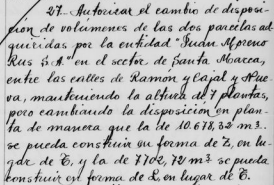 27.- Autorizar el cambio de disposi-
ción de volúmenes de las dos parcelas ad-
quiridas por la entidad "Juan Moreno
Rus S.A." en el sector de Santa Marca,
entre las calles de Ramón y Cajal y Nue-
va, manteniendo la altura de 7 plantas,
pero cambiando la disposición en plan-
ta de manera que la de 10.678,32 m³.
se pueda construir en forma de Z, en lu-
gar de C, y la de 7702,72 m³ se pueda
construir en forma de L, en lugar de C.